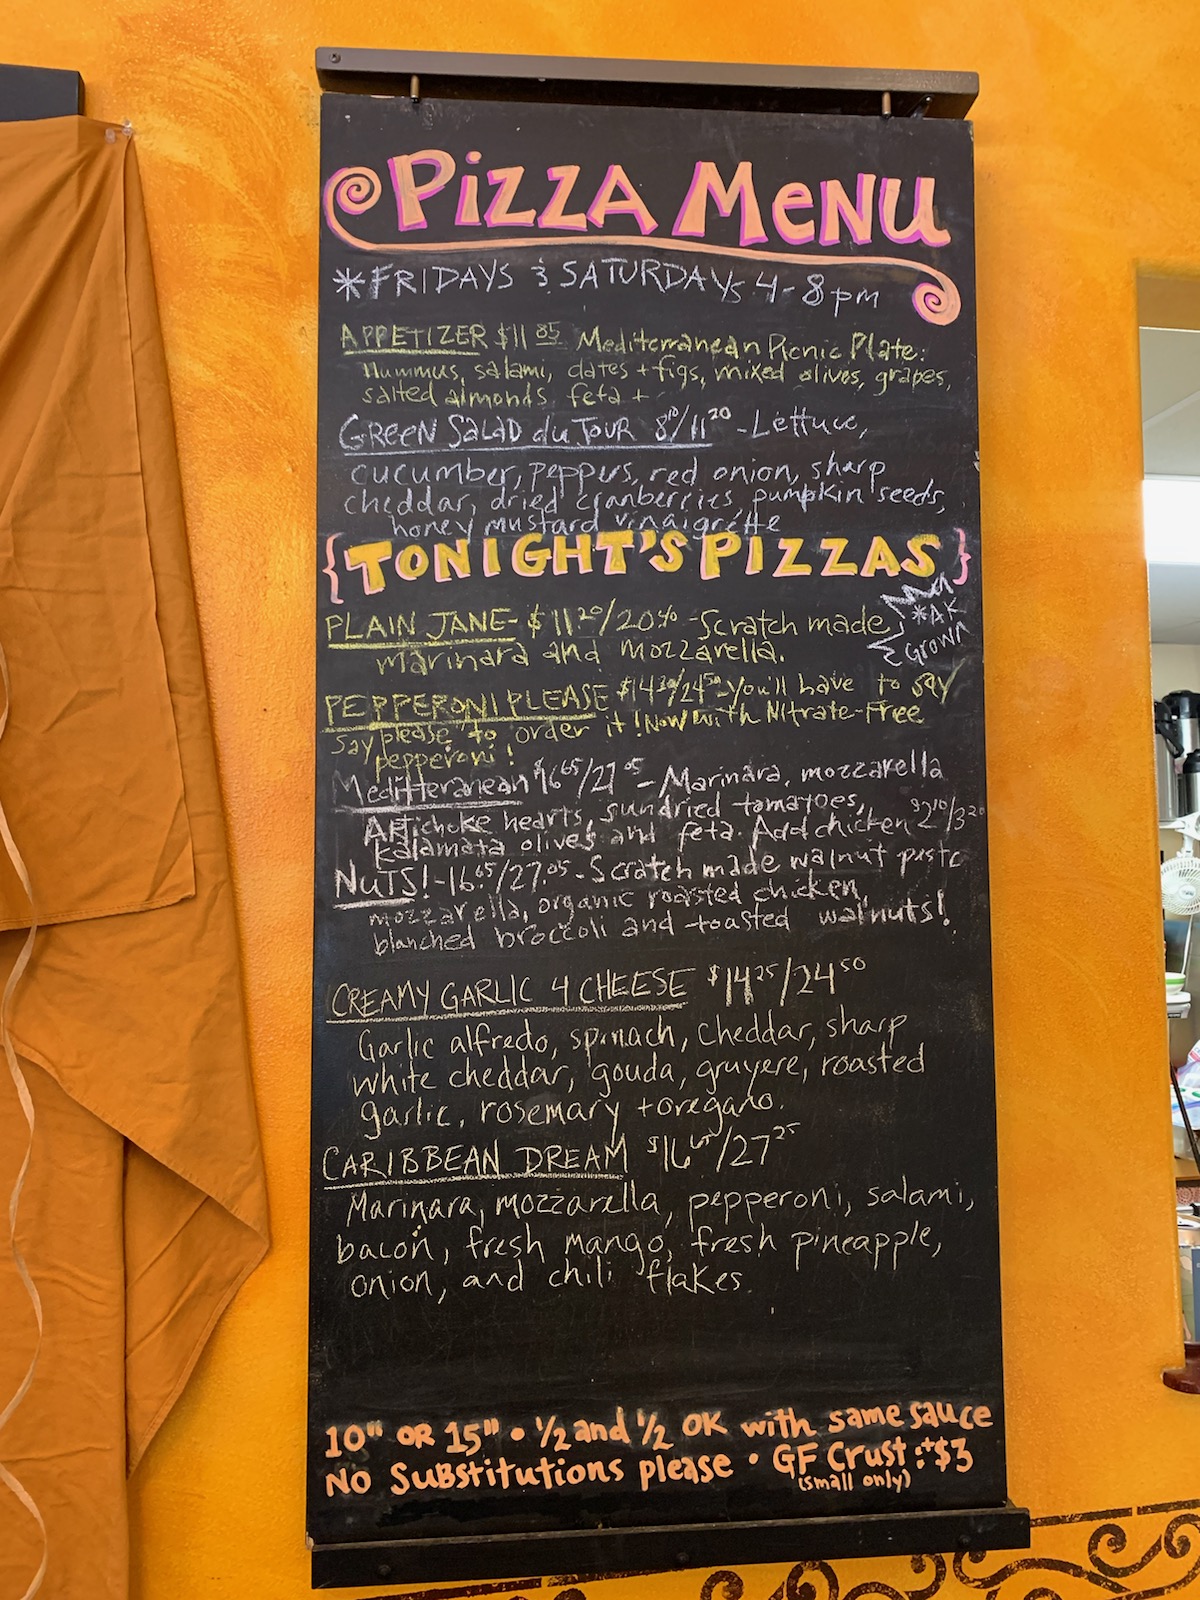 PIZZA MENU
*FRIDAYS & SATURDAYS 4-8pm
APPETIZER $11 85 Mediterranean Picnic Plate:
Hummus, salami, dates + figs, mixed olives, grapes,
salted almonds, feta +
GREEN SALAD du TOUR 8 10/11 20 - Lettuce,
cucumber, peppers, red onion, sharp
cheddar, dried cranberries, pumpkin seeds,
honey mustard vinaigrette
{TONIGHT'S PIZZAS}
*AK
GROWN
PLAIN JANE- $11 20/20 40 - Scratch made
marinara and mozzarella.
PEPPERONI PLEASE $14 30/24 50 - You'll have to say
say "please" to order it! Now with Nitrate-Free
pepperoni!
Mediterranean $16 65/27 05 - Marinara, mozzarella
Artichoke hearts, sundried tomatoes,
kalamata olives and feta. Add chicken $2 10/3 20
NUTS! - 16 65/27.05 - Scratch made walnut pesto
mozzarella, organic roasted chicken,
blanched broccoli and toasted walnuts!
CREAMY GARLIC 4 CHEESE $14 25/24 50
Garlic alfredo, spinach, cheddar, sharp
white cheddar, gouda, gruyere, roasted
garlic, rosemary + oregano.
CARIBBEAN DREAM $16 65/27 25
Marinara, mozzarella, pepperoni, salami,
bacon, fresh mango, fresh pineapple,
onion, and chili flakes.
10" OR 15" • 1/2 and 1/2 OK with same sauce
NO Substitutions please • GF Crust: +$3
(small only)